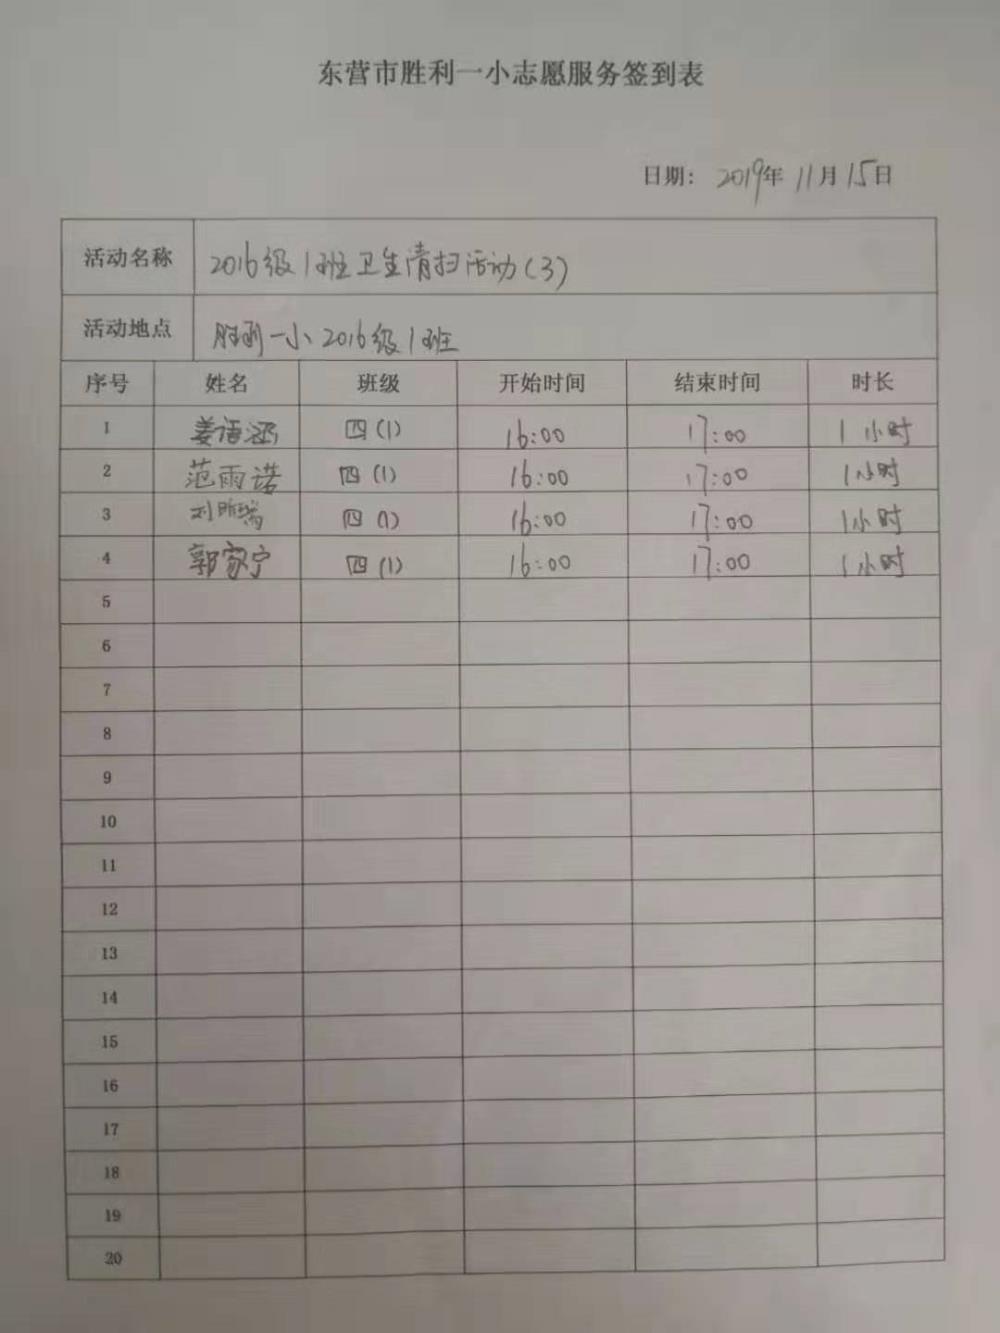 东营市胜利一小志愿服务签到表
日期: 2019年11月15日
活动名称 2016级1班卫生清扫活动(3)
活动地点 胜利一小2016级1班
序号 姓名 班级 开始时间 结束时间 时长
1 姜语涵 四(1) 16:00 17:00 1小时
2 范雨诺 四(1) 16:00 17:00 1小时
3 刘 四(1) 16:00 17:00 1小时
4 郭家宁 四(1) 16:00 17:00 1小时
5
6
7
8
9
10
11
12
13
14
15
16
17
18
19
20